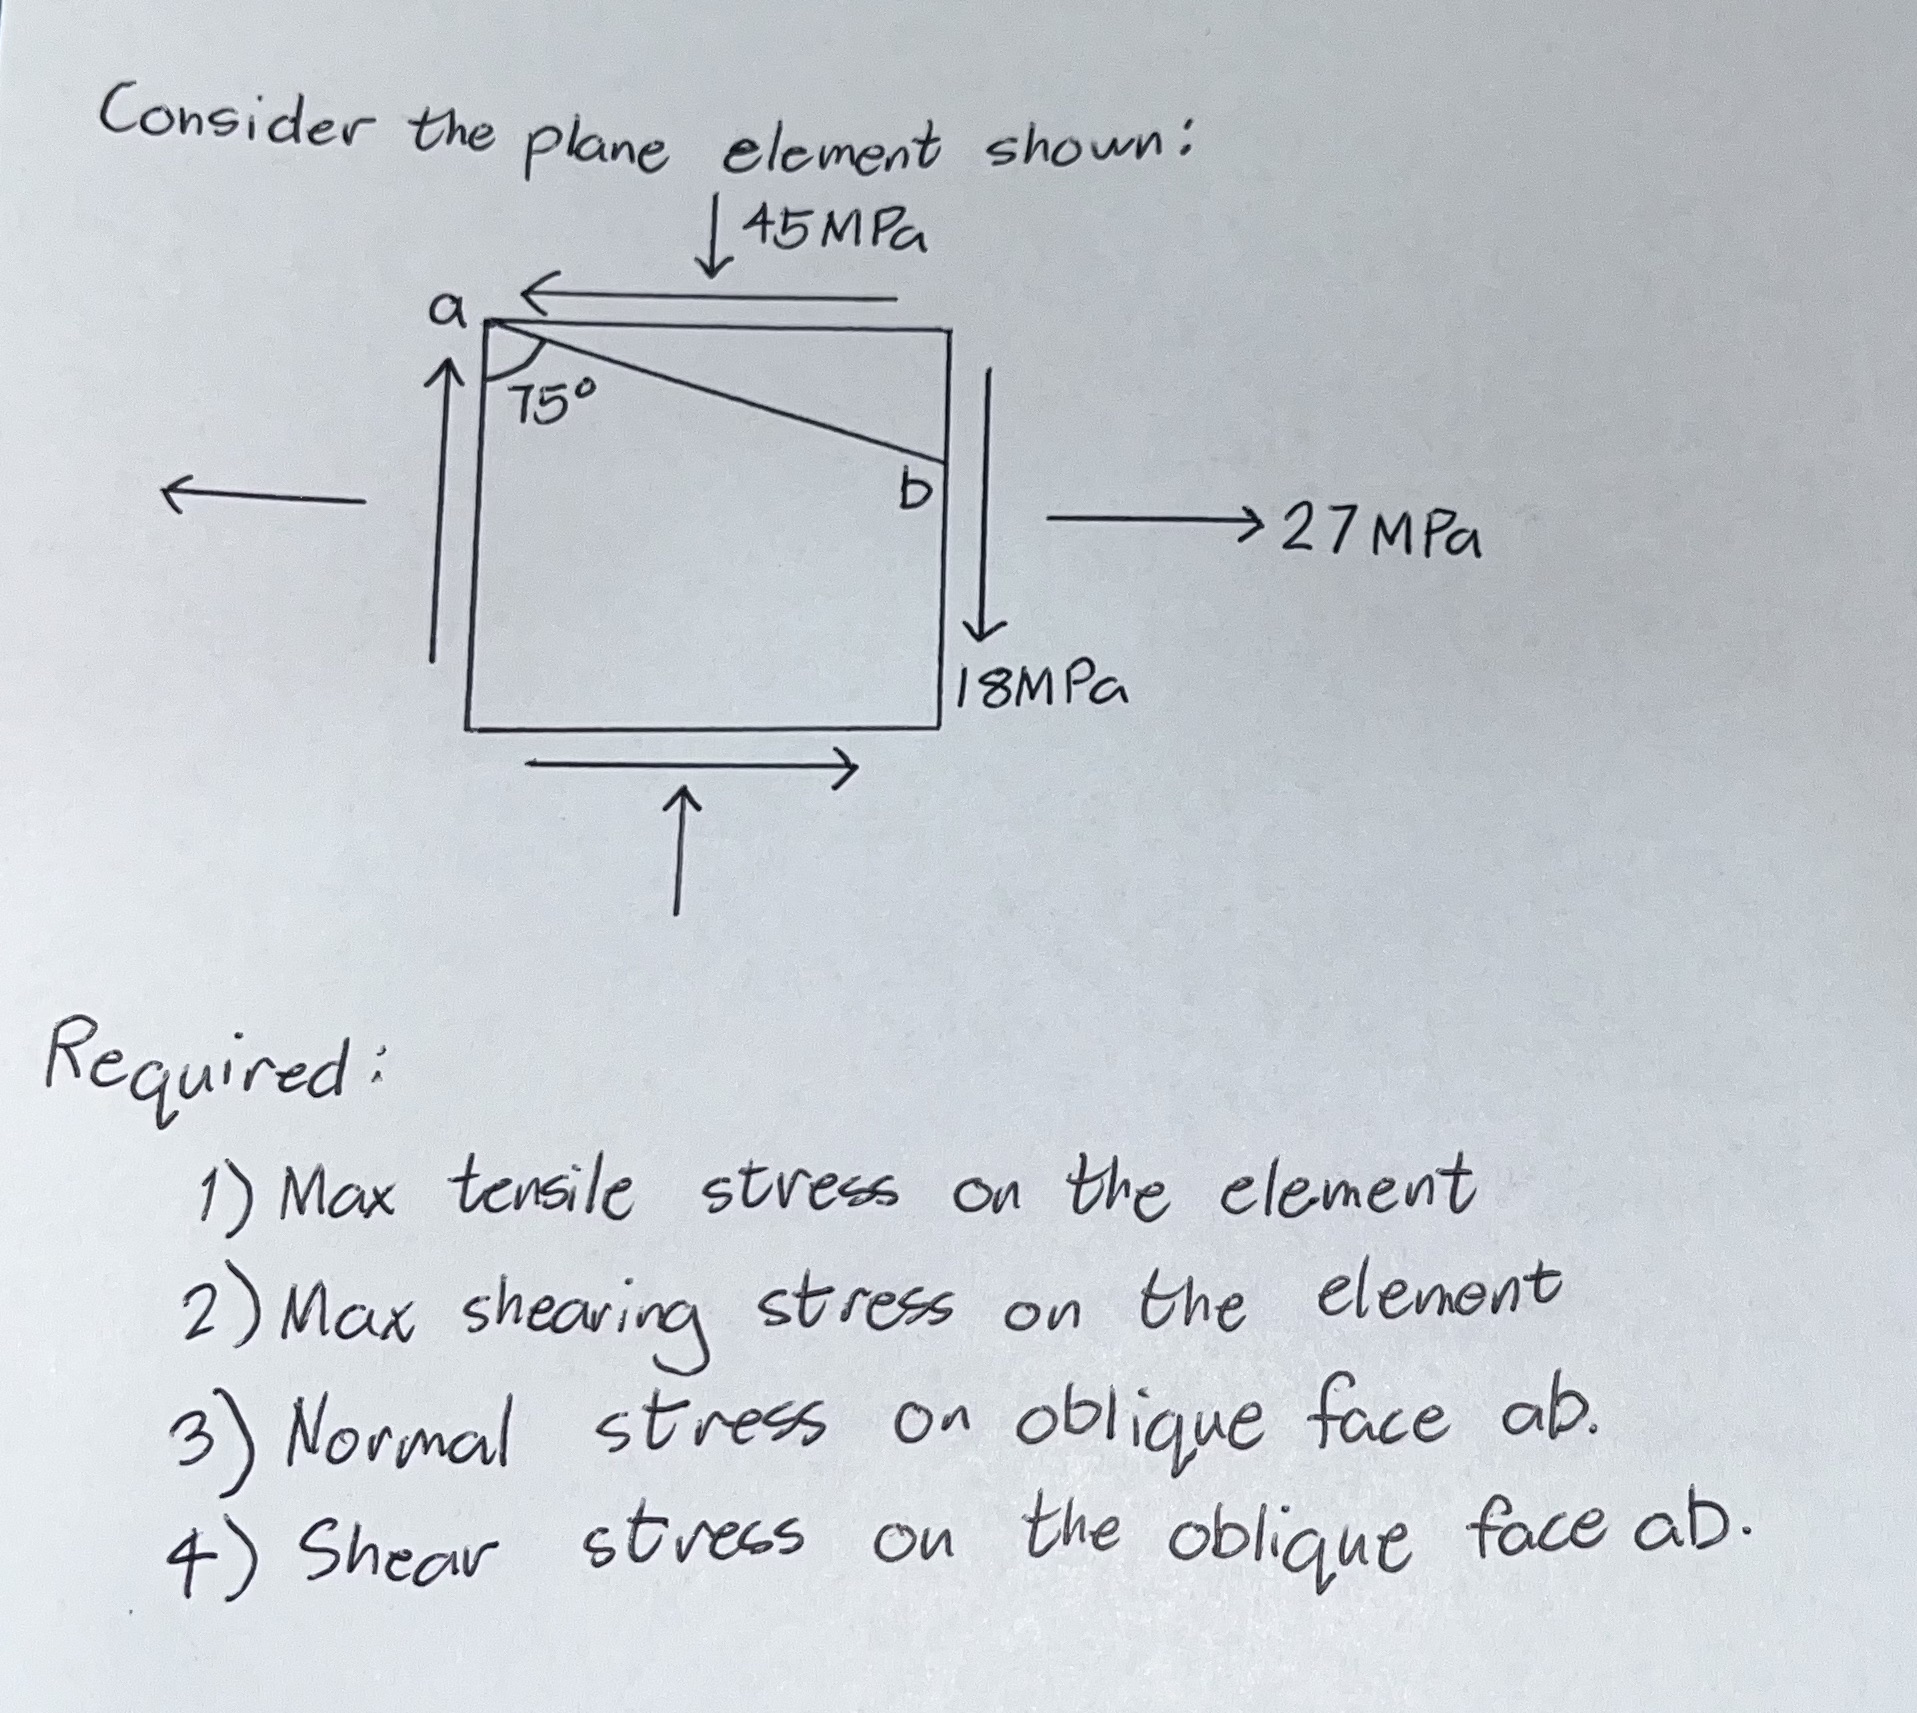 Consider the plane element shown:
45MPa
a
75°
b
27MPa
18MPa
Required:
1) Max tensile stress on the element
2) Max shearing stress on the element
3) Normal stress on oblique face ab.
4) Shear stress on the oblique face ab.